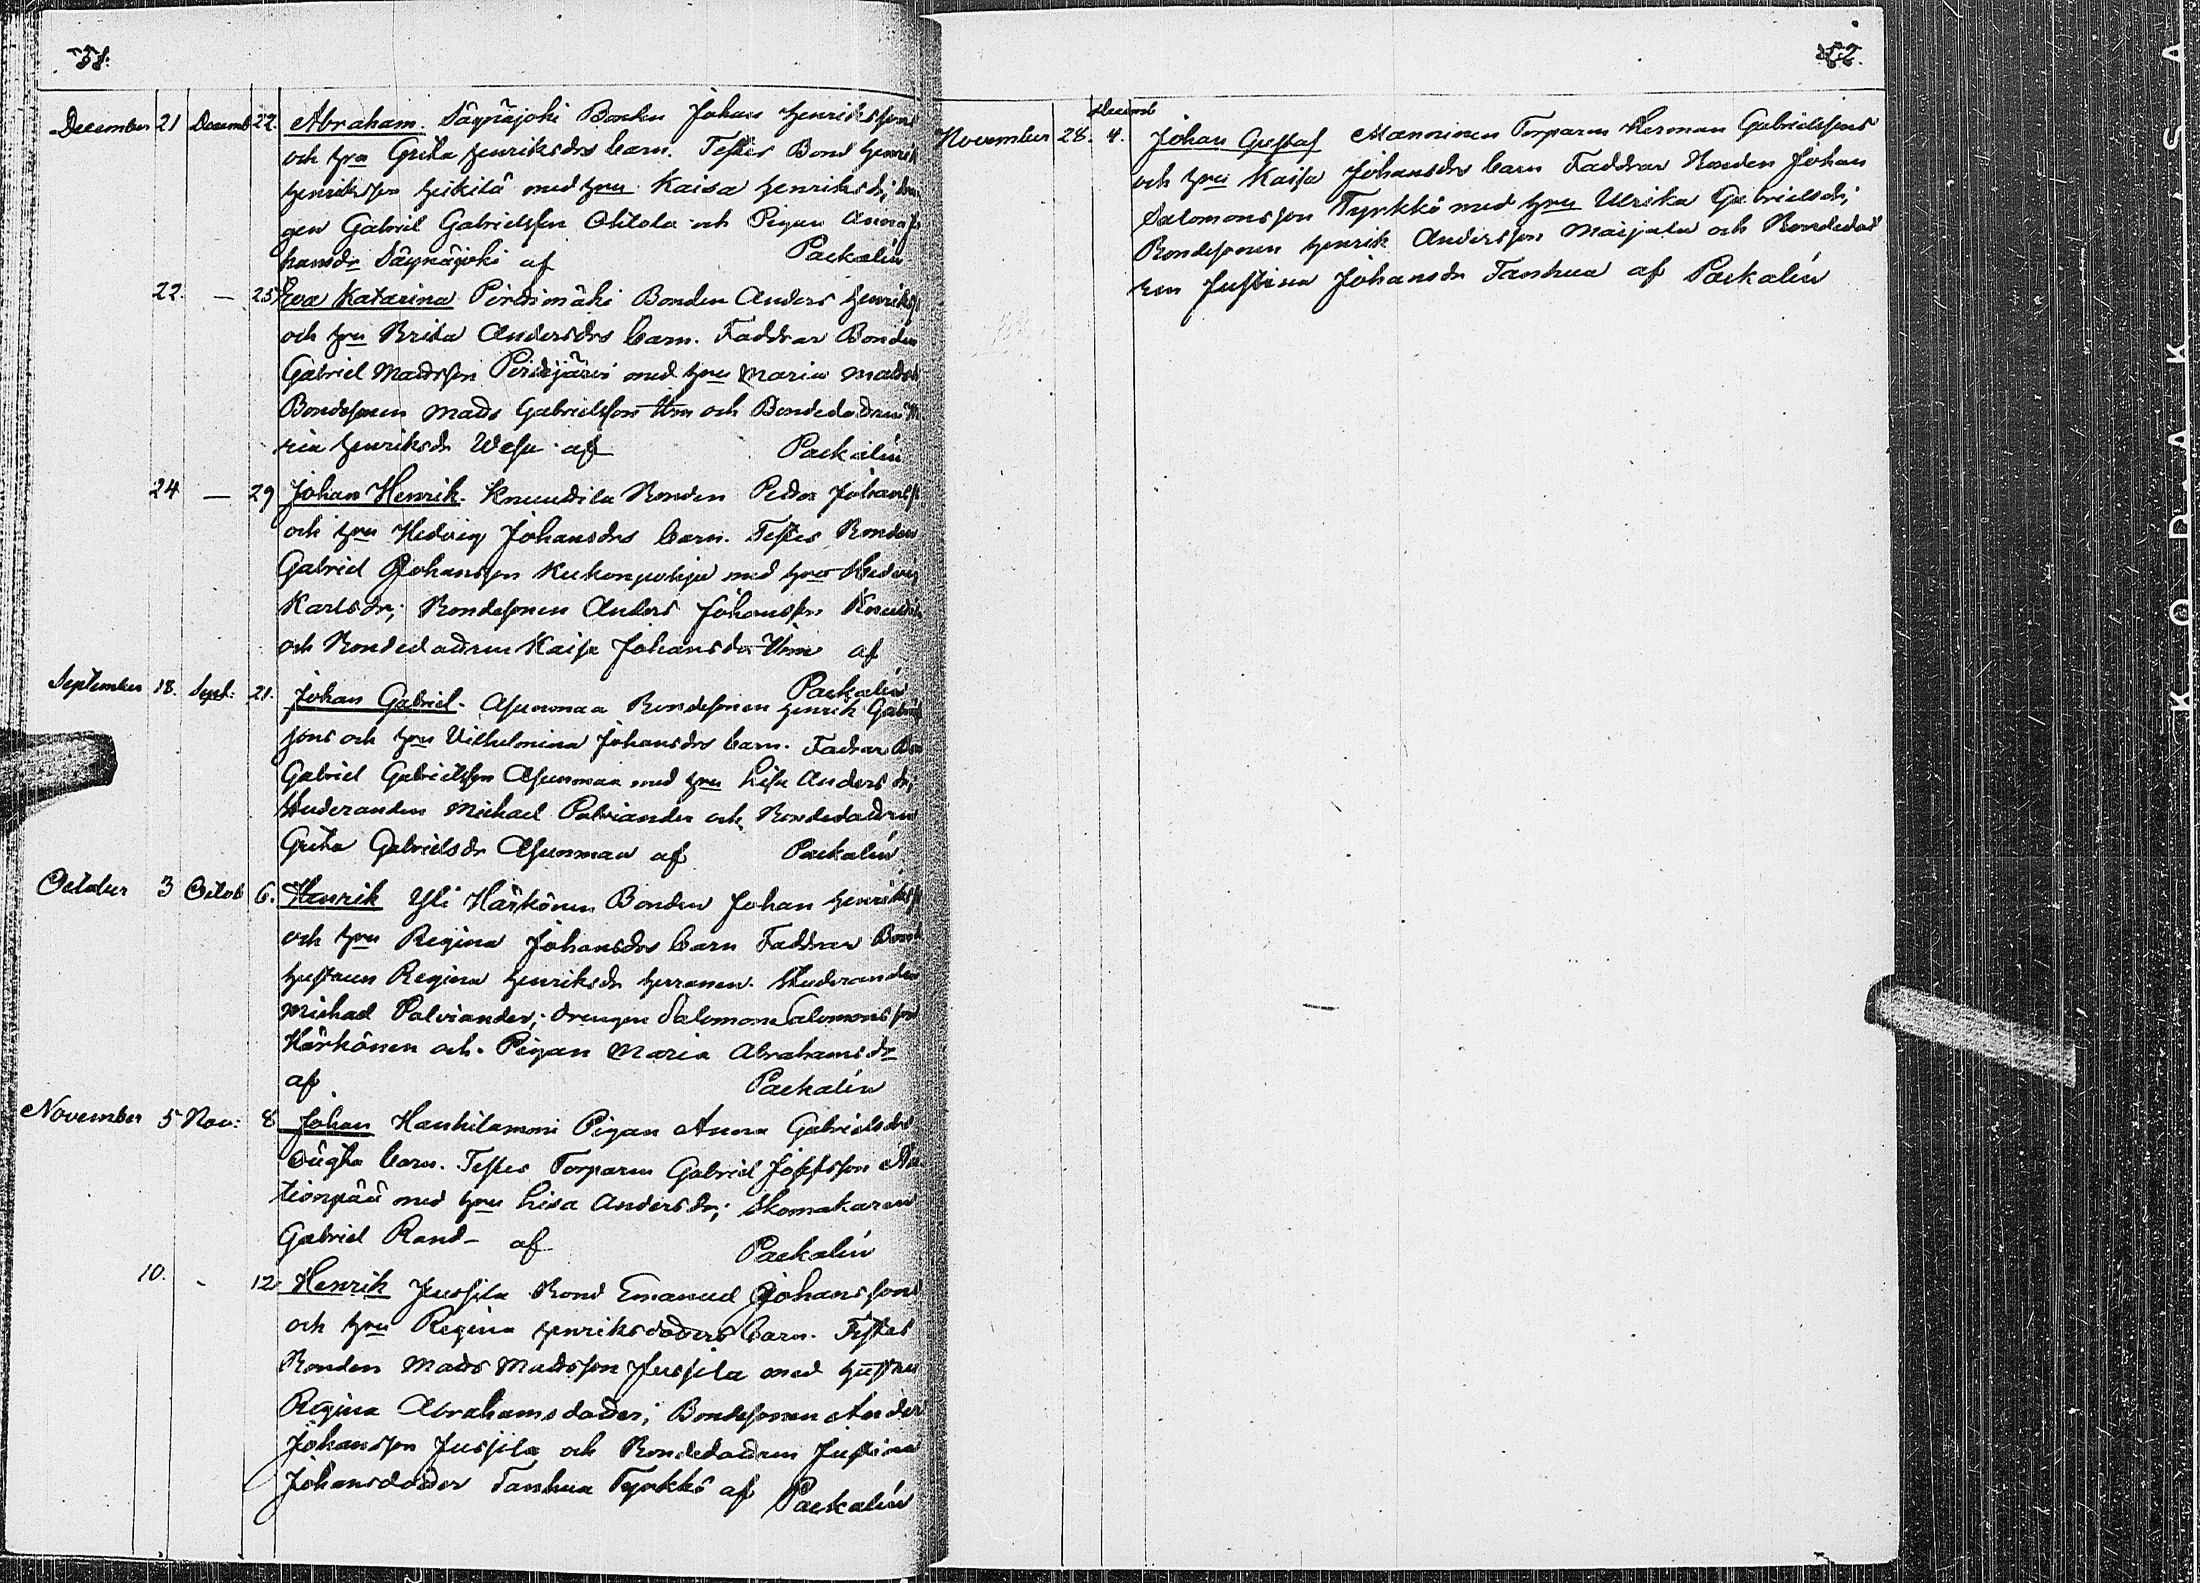 51.
December 21 Decemb 22. Abraham. Säynäjoki Bonden Johan Henrikssons
och hru Greta Henriksdrs barn. Testes Bond Henrik
Henriksson Heikilä med hru Kaisa Henriksdr; dren
gen Gabriel Gabrielsson Ollila och Pigan Anna Jo
hansdr Säynäjoki af Packalén
22. — 25 Eva Katarina Pirttimäki Bonden Anders Henrikss
och hru Brita Andersdrs barn. Faddrar Bonden
Gabriel Mattsson Peräjärvi med hru Maria Matts
Bondesonen Matts Gabrielsson och Bondedottren
ria Henriksdr Wesa af Packalén
24 — 29 Johan Henrik. Knuuttila Bonden Petter Johanss
och hru Hedvig Johansdrs barn. Testes Bonden
Gabriel Johansson Kukonpohja med hru Hedvig
Karlsdr; Bondesonen Anders Johansson Knuutti
och Bondedottren Kaisa Johansdr af
Packalén
September 18. Sept: 21. Johan Gabriel. Asunmaa Bondesonen Henrik Gabriels
sons och hru Vilhelmina Johansdrs barn. Fadrar Bon
Gabriel Gabrielsson Asunmaa med hru Lisa Andersdr;
Studeranden Michael Palviander och Bondedottren
Greta Gabrielsdr Asunmaa af Packalén
October 3 Octob 6. Henrik Yli Härkönen Bonden Johan Henrikss
och hru Regina Johansdrs barn Faddrar Bond
hustrun Regina Henriksdr Herranen. Studeranden
Michael Palviander; drengen Salomon Salomonsson
Härkönen och Pigan Maria Abrahamsdr
af Packalén
November 5 Nov: 8 Johan Hankilamoni Pigan Anna Gabrielsdrs
oägta barn. Testes Torparen Gabriel Josefsson
tionpää med hru Lisa Andersdr; Skomakaren
Gabriel Rand- af Packalén
10. - 12 Henrik Jussila Bond Emanuel Johanssons
och hru Regina Henriksdotters barn. Testes
Bonden Matts Mattsson Jussila med hustru
Regina Abrahamsdotter; Bondesonen Anders
Johansson Jussila och Bondedottren Justina
Johansdotter Tanhua Tyrkkö af Packalén
52.
November 28. Decemb 4. Johan Gustaf Manninen Torparen Herman Gabrielssons
och hru Kaisa Johansdrs barn Faddrar Bonden Johan
Salomonsson Tyrkkö med hru Ulrika Gabrielsdr;
Bondesonen Henrik Andersson Marjala och Bondedot
ren Justina Johansdr Tanhua af Packalén
KODAK S.A